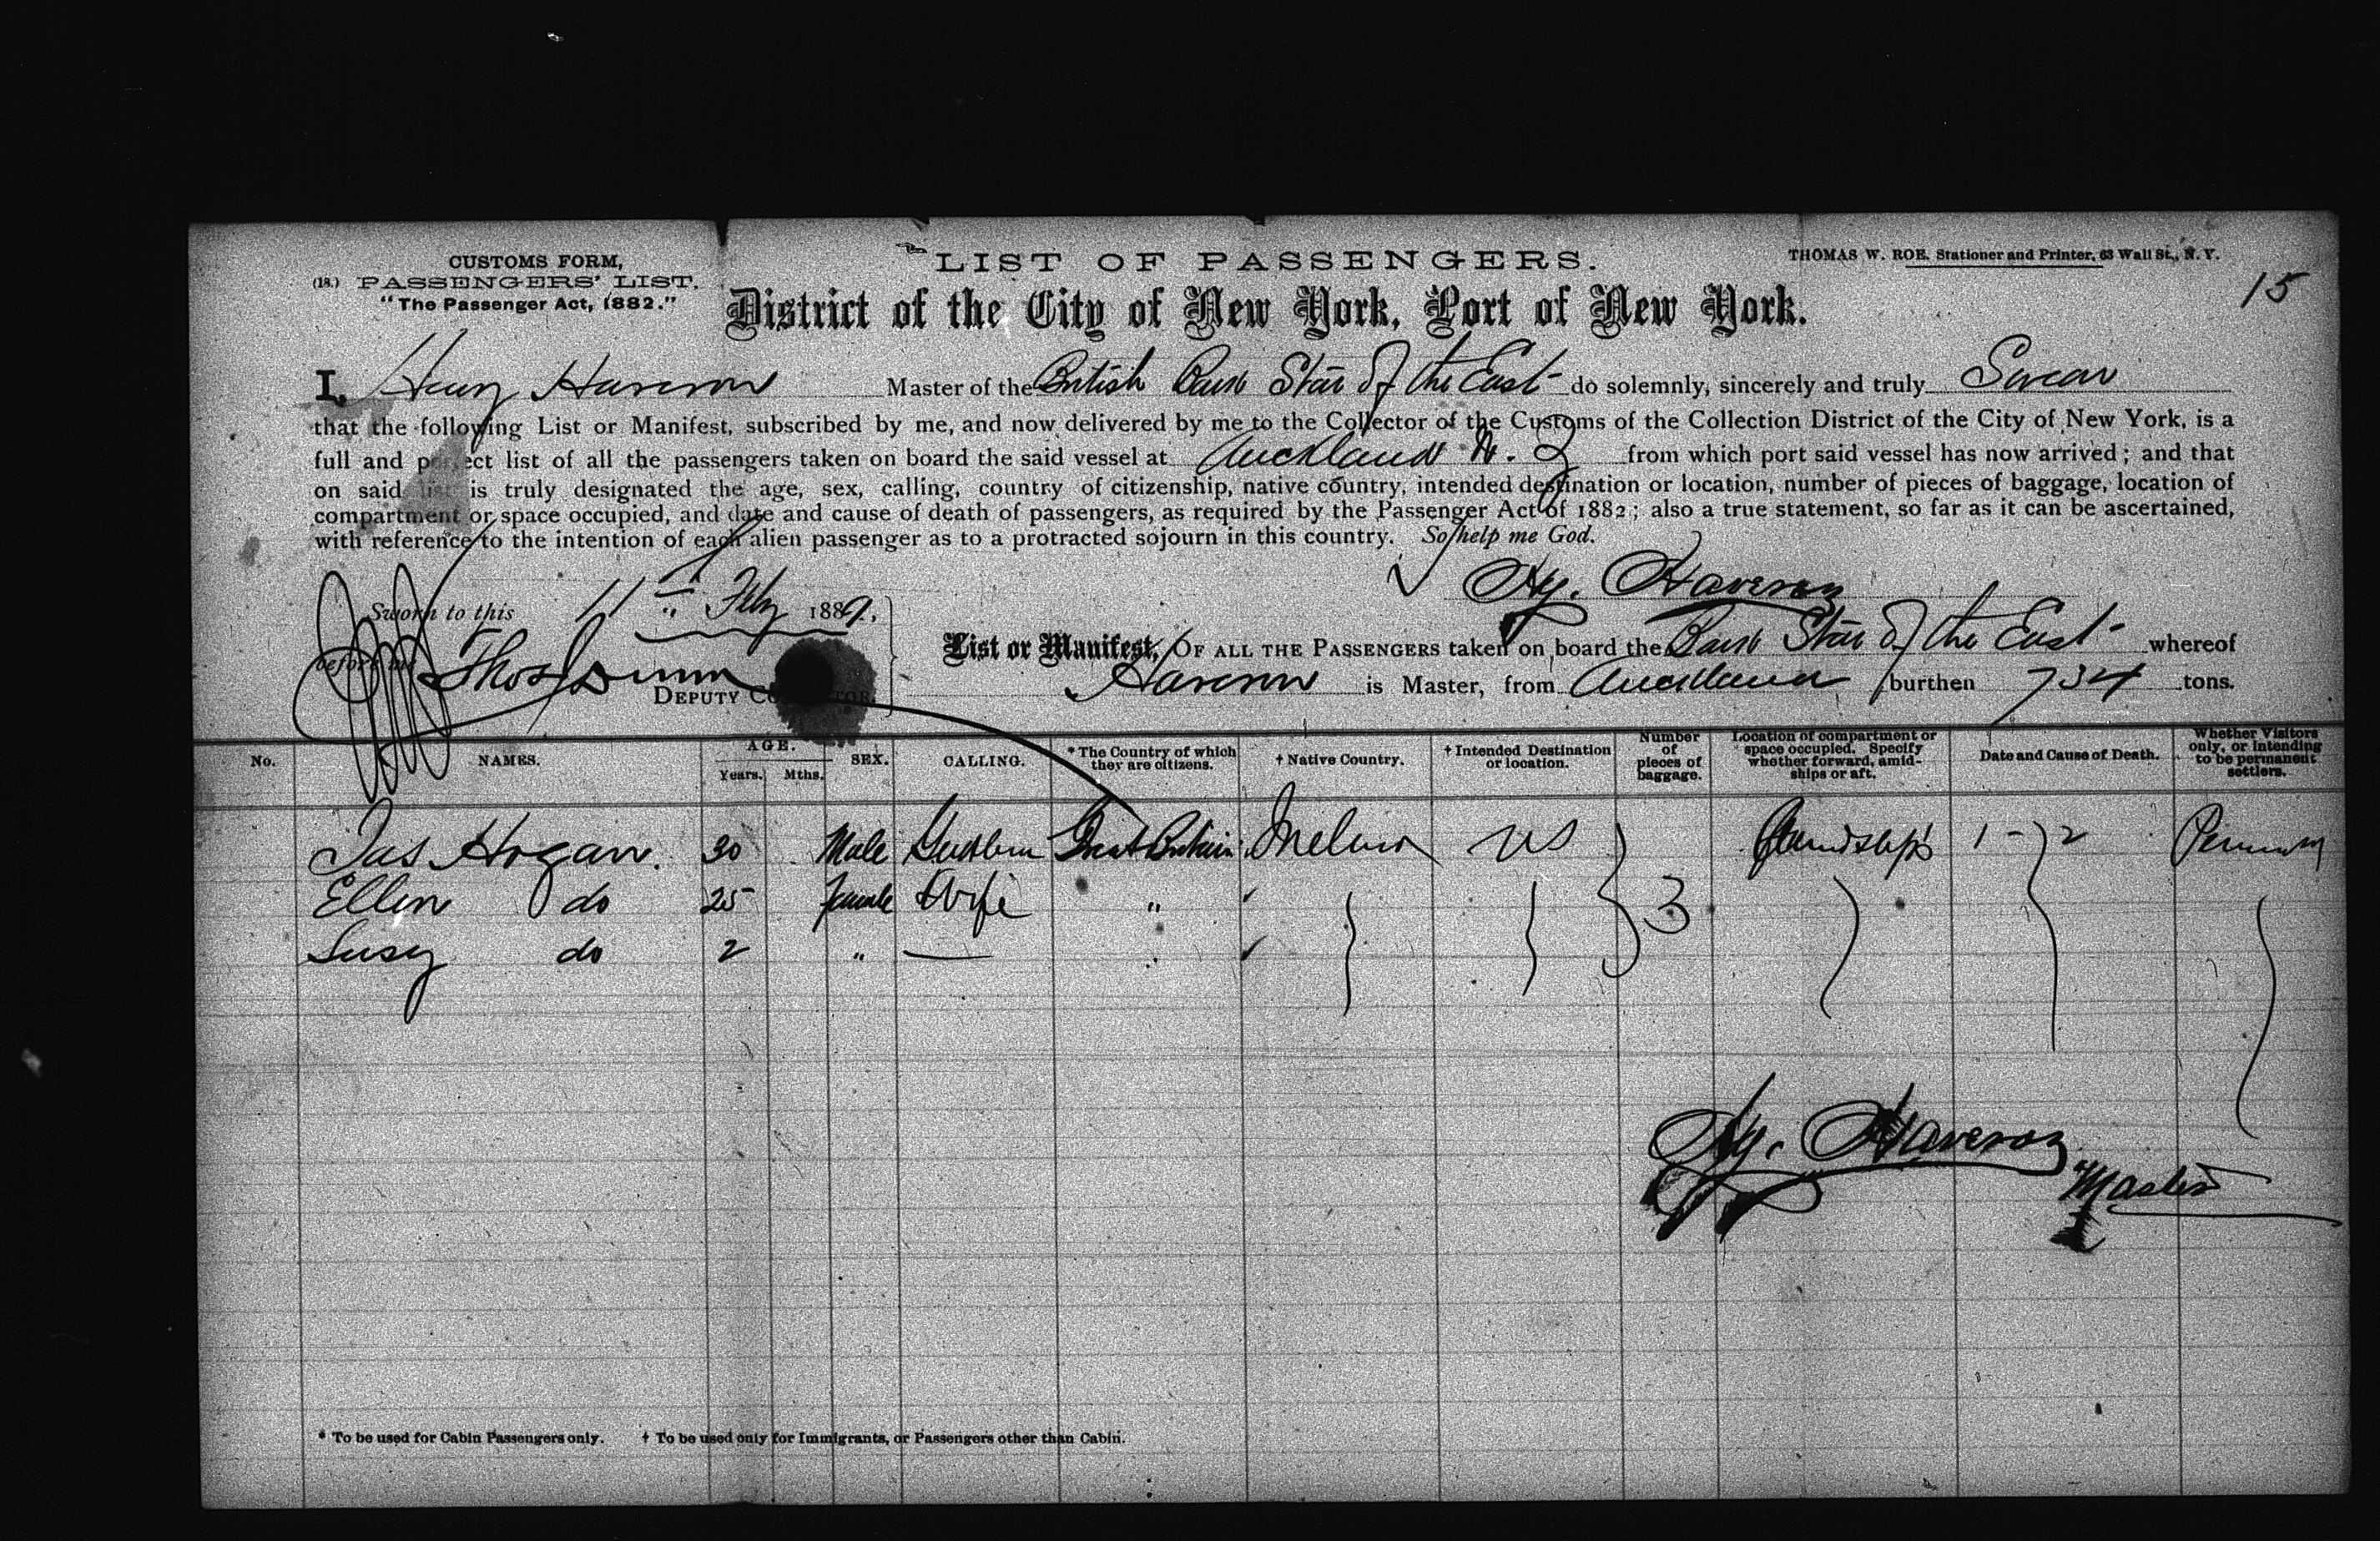 CUSTOMS FORM,
(18.) PASSENGERS' LIST.
"The Passenger Act, 1882."
LIST OF PASSENGERS.
THOMAS W. ROE, Stationer and Printer, 63 Wall St., N. Y.
15
District of the City of New York, Port of New York.
I, Henry Haveron Master of the British Bark Star of the East do solemnly, sincerely and truly Swear
that the following List or Manifest, subscribed by me, and now delivered by me to the Collector of the Customs of the Collection District of the City of New York, is a
full and perfect list of all the passengers taken on board the said vessel at Auckland N. Z from which port said vessel has now arrived; and that
on said list is truly designated the age, sex, calling, country of citizenship, native country, intended destination or location, number of pieces of baggage, location of
compartment or space occupied, and date and cause of death of passengers, as required by the Passenger Act of 1882; also a true statement, so far as it can be ascertained,
with reference to the intention of each alien passenger as to a protracted sojourn in this country. So help me God.
Hy. Haveron
Sworn to this 11th Feby 1889.
before me Thos Dunn
DEPUTY COLLECTOR
List or Manifest, OF ALL THE PASSENGERS taken on board the Bark Star of the East whereof
Haveron is Master, from Auckland burthen 734 tons.
No. NAMES. AGE. Years. Mths. SEX. CALLING. * The Country of which they are citizens. † Native Country. † Intended Destination or location. Number of pieces of baggage. Location of compartment or space occupied. Specify whether forward, amidships or aft. Date and Cause of Death. Whether Visitors only, or intending to be permanent settlers.
Jas Hogan. 30 Male Great Britain US Amidships 1 - 2
Ellen do 25 female Wife " 3
Susy do 2 " — "
Hy. Haveron
Master
* To be used for Cabin Passengers only. † To be used only for Immigrants, or Passengers other than Cabin.